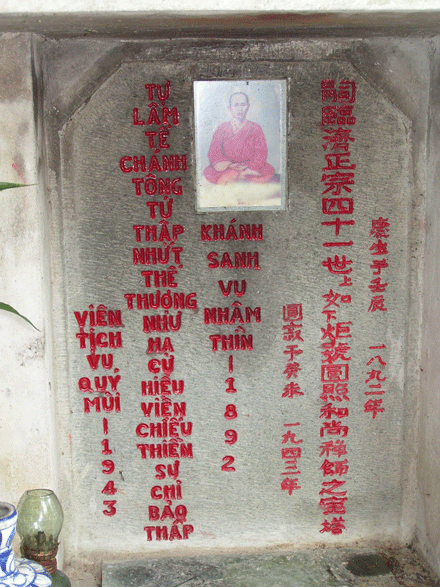 慶生于壬辰 一八九二年
嗣臨濟正宗四十一世上如下炬號圓照和尚禅師之宝塔
圓寂于癸未 一九四三年
KHÁNH SANH VU NHÂM THÌN | 1892
TỰ LÂM TẾ CHÁNH TÔNG TỨ THẤP NHỨT THẾ THƯỢNG NHƯ HẠ CỰ HIỆU VIÊN CHIẾU THIỀN SƯ CHỈ BẢO THÁP
VIÊN TỊCH VU QUÝ MÙI | 1943